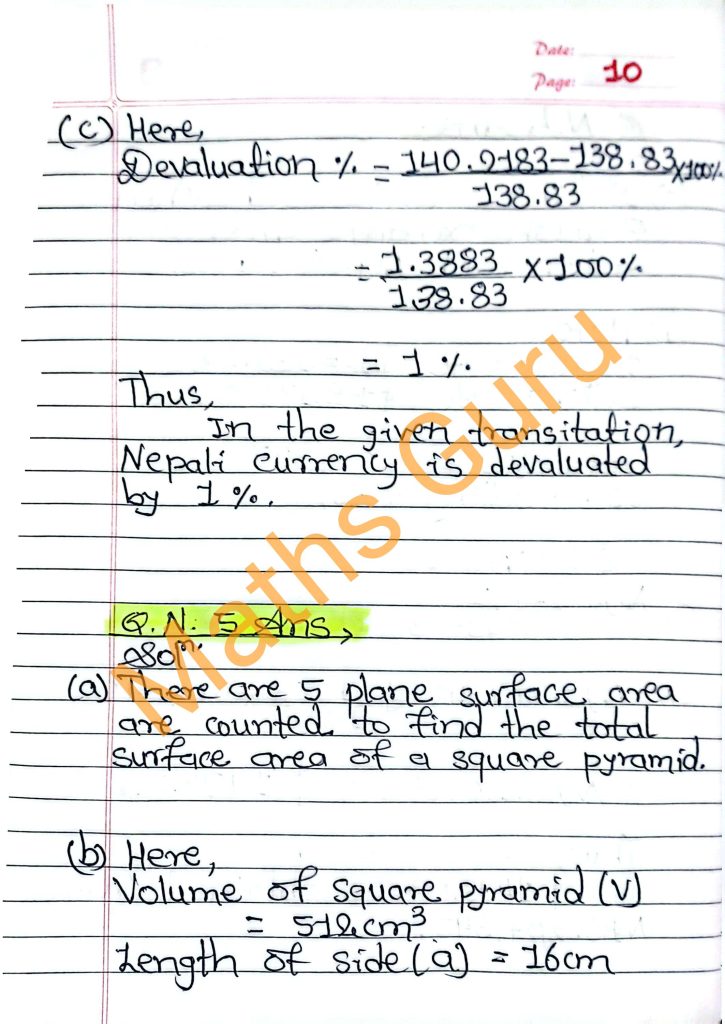 Date:
Page: 10
(c) Here,
Devaluation % = 140.2183-138.83 ×100%
138.83
= 1.3883 × 100%
138.83
= 1 %
Thus,
In the given transitation,
Nepali currency is devaluated
by 1 %.
Maths Guru
Q.N. 5 Ans,
(a) There are 5 plane surface area
are counted to find the total
surface area of a square pyramid.
(b) Here,
Volume of square pyramid (V)
= 512cm³
Length of side (a) = 16cm